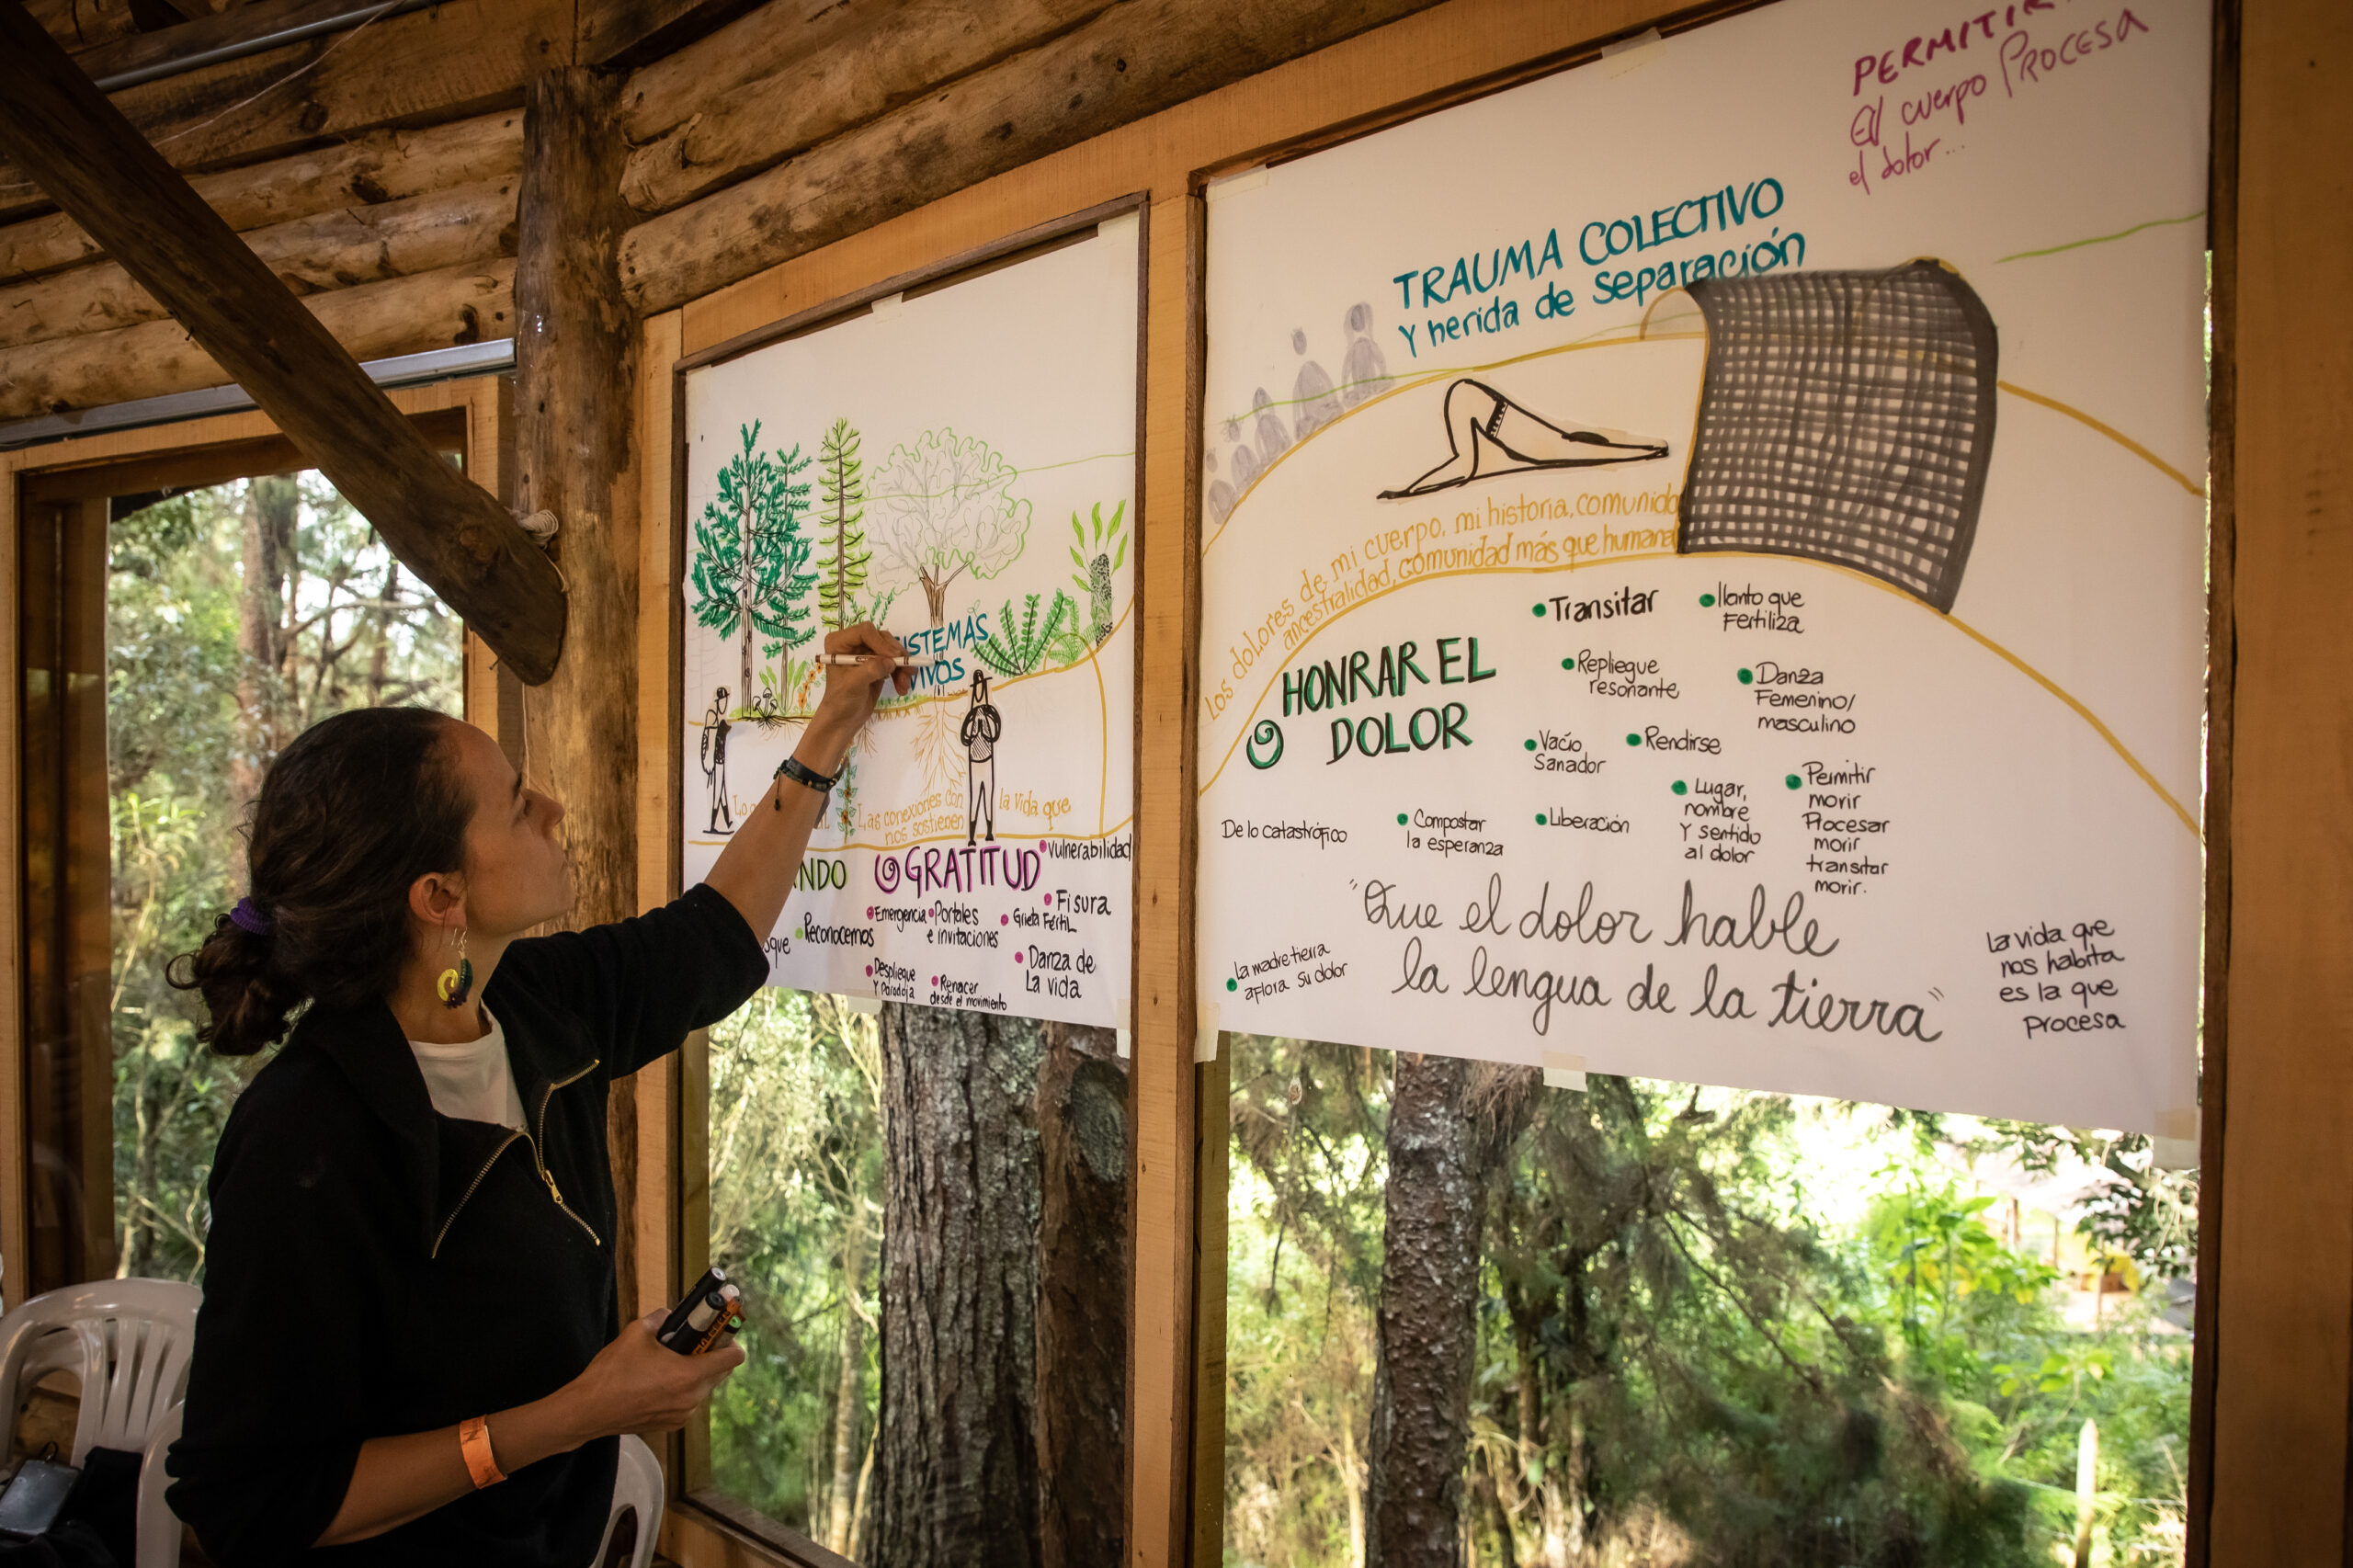 SISTEMAS
VIVOS
Las conexiones con
nos sostienen
la vida que
NDO
GRATITUD
Vulnerabilidad
Emergencia
Portales
e invitaciones
Grieta Fértil
Fisura
Reconocernos
Despliegue
Y Paradoja
Renacer
desde el movimiento
Danza de
La vida
PERMITIR
El cuerpo Procesa
el dolor...
TRAUMA COLECTIVO
Y herida de separación
Los dolores de mi cuerpo, mi historia, comunidad
ancestralidad, comunidad más que humana
HONRAR EL
DOLOR
Transitar
llanto que
Fertiliza
Repliegue
resonante
Danza
Femenino/
masculino
Vacío
Sanador
Rendirse
Lugar,
nombre
Y sentido
al dolor
Permitir
morir
Procesar
morir
transitar
morir.
De lo catastrófico
Compostar
la esperanza
Liberación
"Que el dolor hable
la lengua de la tierra"
La madre tierra
aflora su dolor
La vida que
nos habita
es la que
Procesa